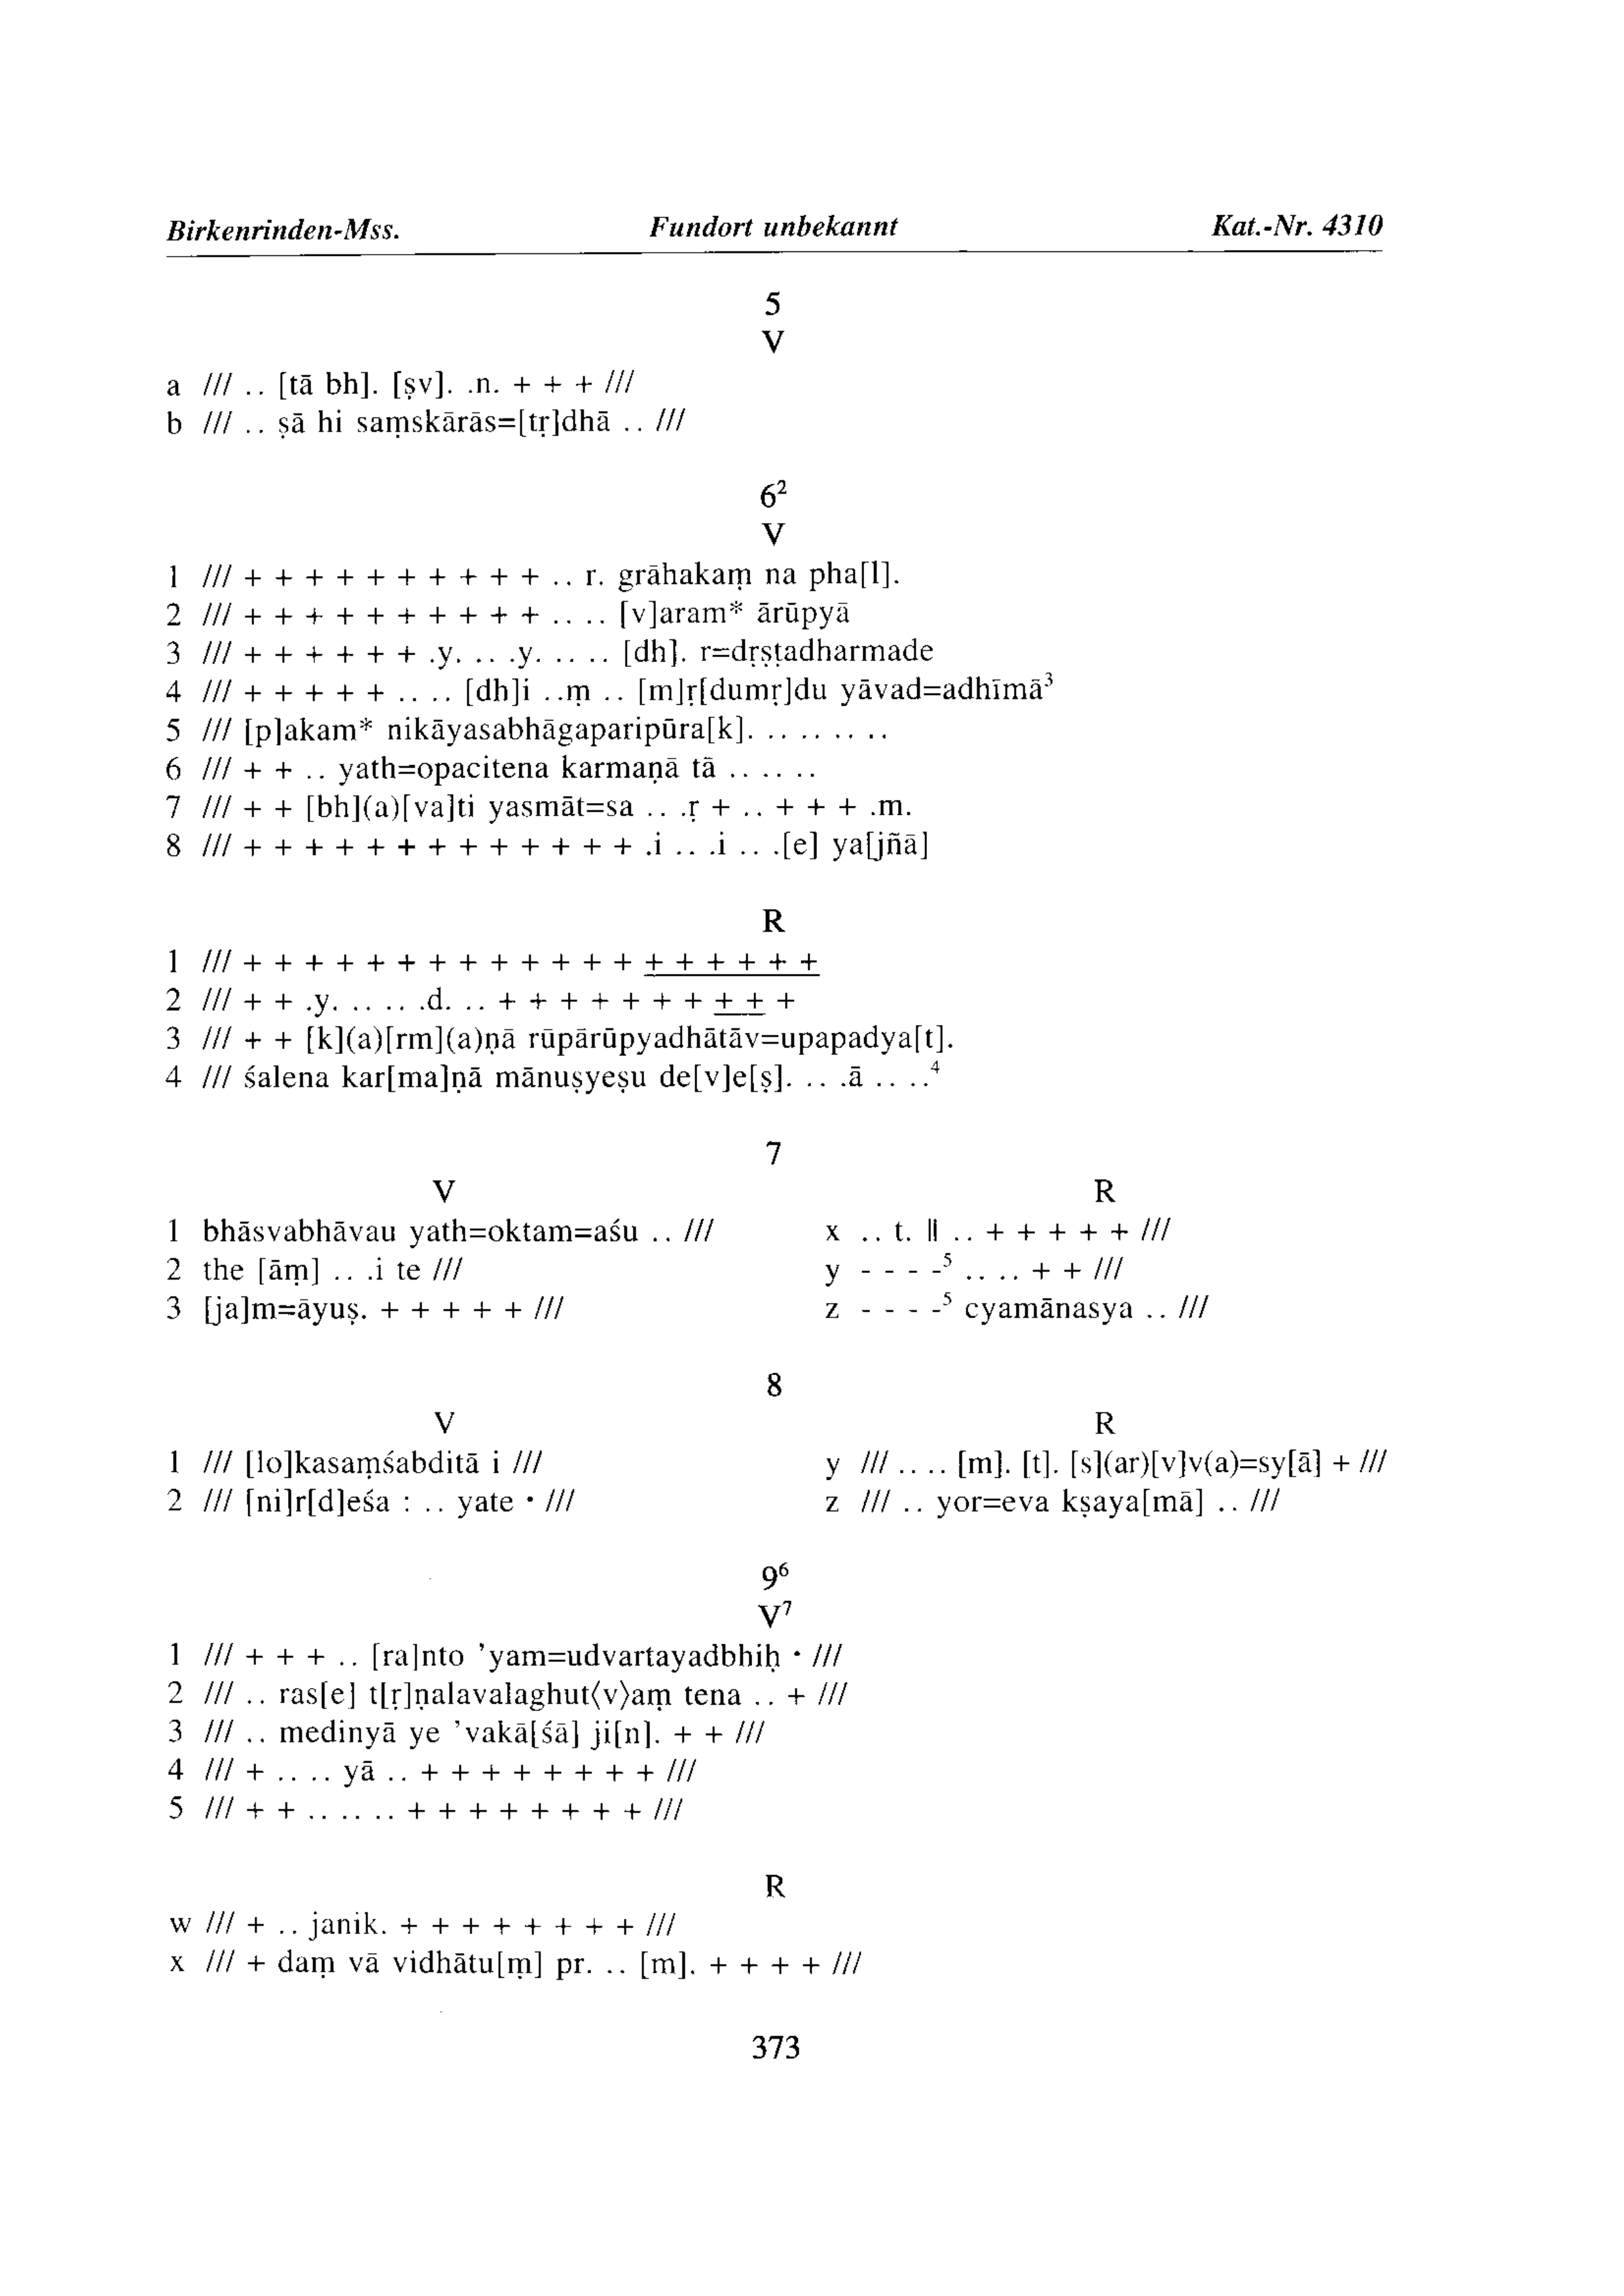 Birkenrinden-Mss. Fundort unbekannt Kat.-Nr. 4310
5
V
a /// .. [tā bh]. [ṣv]. .n. + + + ///
b /// .. ṣā hi saṃskārās=[tṛ]dhā .. ///
6²
V
1 /// + + + + + + + + + + .. r. grāhakaṃ na pha[l].
2 /// + + + + + + + + + + .. .. [v]aram* ārūpyā
3 /// + + + + + + .y. .. .y. .. .. [dh]. r=dṛṣṭadharmade
4 /// + + + + + .. .. [dh]i ..ṃ .. [m]ṛ[dumṛ]du yāvad=adhīmā³
5 /// [p]akam* nikāyasabhāgaparipūra[k]. .. .. .. ..
6 /// + + .. yath=opacitena karmaṇā tā .. .. ..
7 /// + + [bh](a)[va]ti yasmāt=sa .. .ṛ + .. + + + .m.
8 /// + + + + + + + + + + + + + .i .. .i .. .[e] ya[jñā]
R
1 /// + + + + + + + + + + + + + + + + + + +
2 /// + + .y. .. .. .d. .. + + + + + + + + + +
3 /// + + [k](a)[rm](a)ṇā rūpārūpyadhātāv=upapadya[t].
4 /// śalena kar[ma]ṇā mānuṣyeṣu de[v]e[ṣ]. .. .ā .. ..⁴
7
V R
1 bhāsvabhāvau yath=oktam=aśu .. /// x .. t. ‖ .. + + + + + ///
2 the [āṃ] .. .i te /// y - - - -⁵ .. .. + + ///
3 [ja]m=āyuṣ. + + + + + /// z - - - -⁵ cyamānasya .. ///
8
V R
1 /// [lo]kasaṃśabditā i /// y /// .. .. [m]. [t]. [s](ar)[v]v(a)=sy[ā] + ///
2 /// [ni]r[d]eśa : .. yate • /// z /// .. yor=eva kṣaya[mā] .. ///
9⁶
V⁷
1 /// + + + .. [ra]nto ’yam=udvartayadbhiḥ • ///
2 /// .. ras[e] t[ṛ]ṇalavalaghut⟨v⟩aṃ tena .. + ///
3 /// .. medinyā ye ’vakā[śā] ji[n]. + + ///
4 /// + .. .. yā .. + + + + + + + + ///
5 /// + + .. .. .. + + + + + + + + ///
R
w /// + .. janik. + + + + + + + + ///
x /// + daṃ vā vidhātu[ṃ] pr. .. [m]. + + + + ///
373